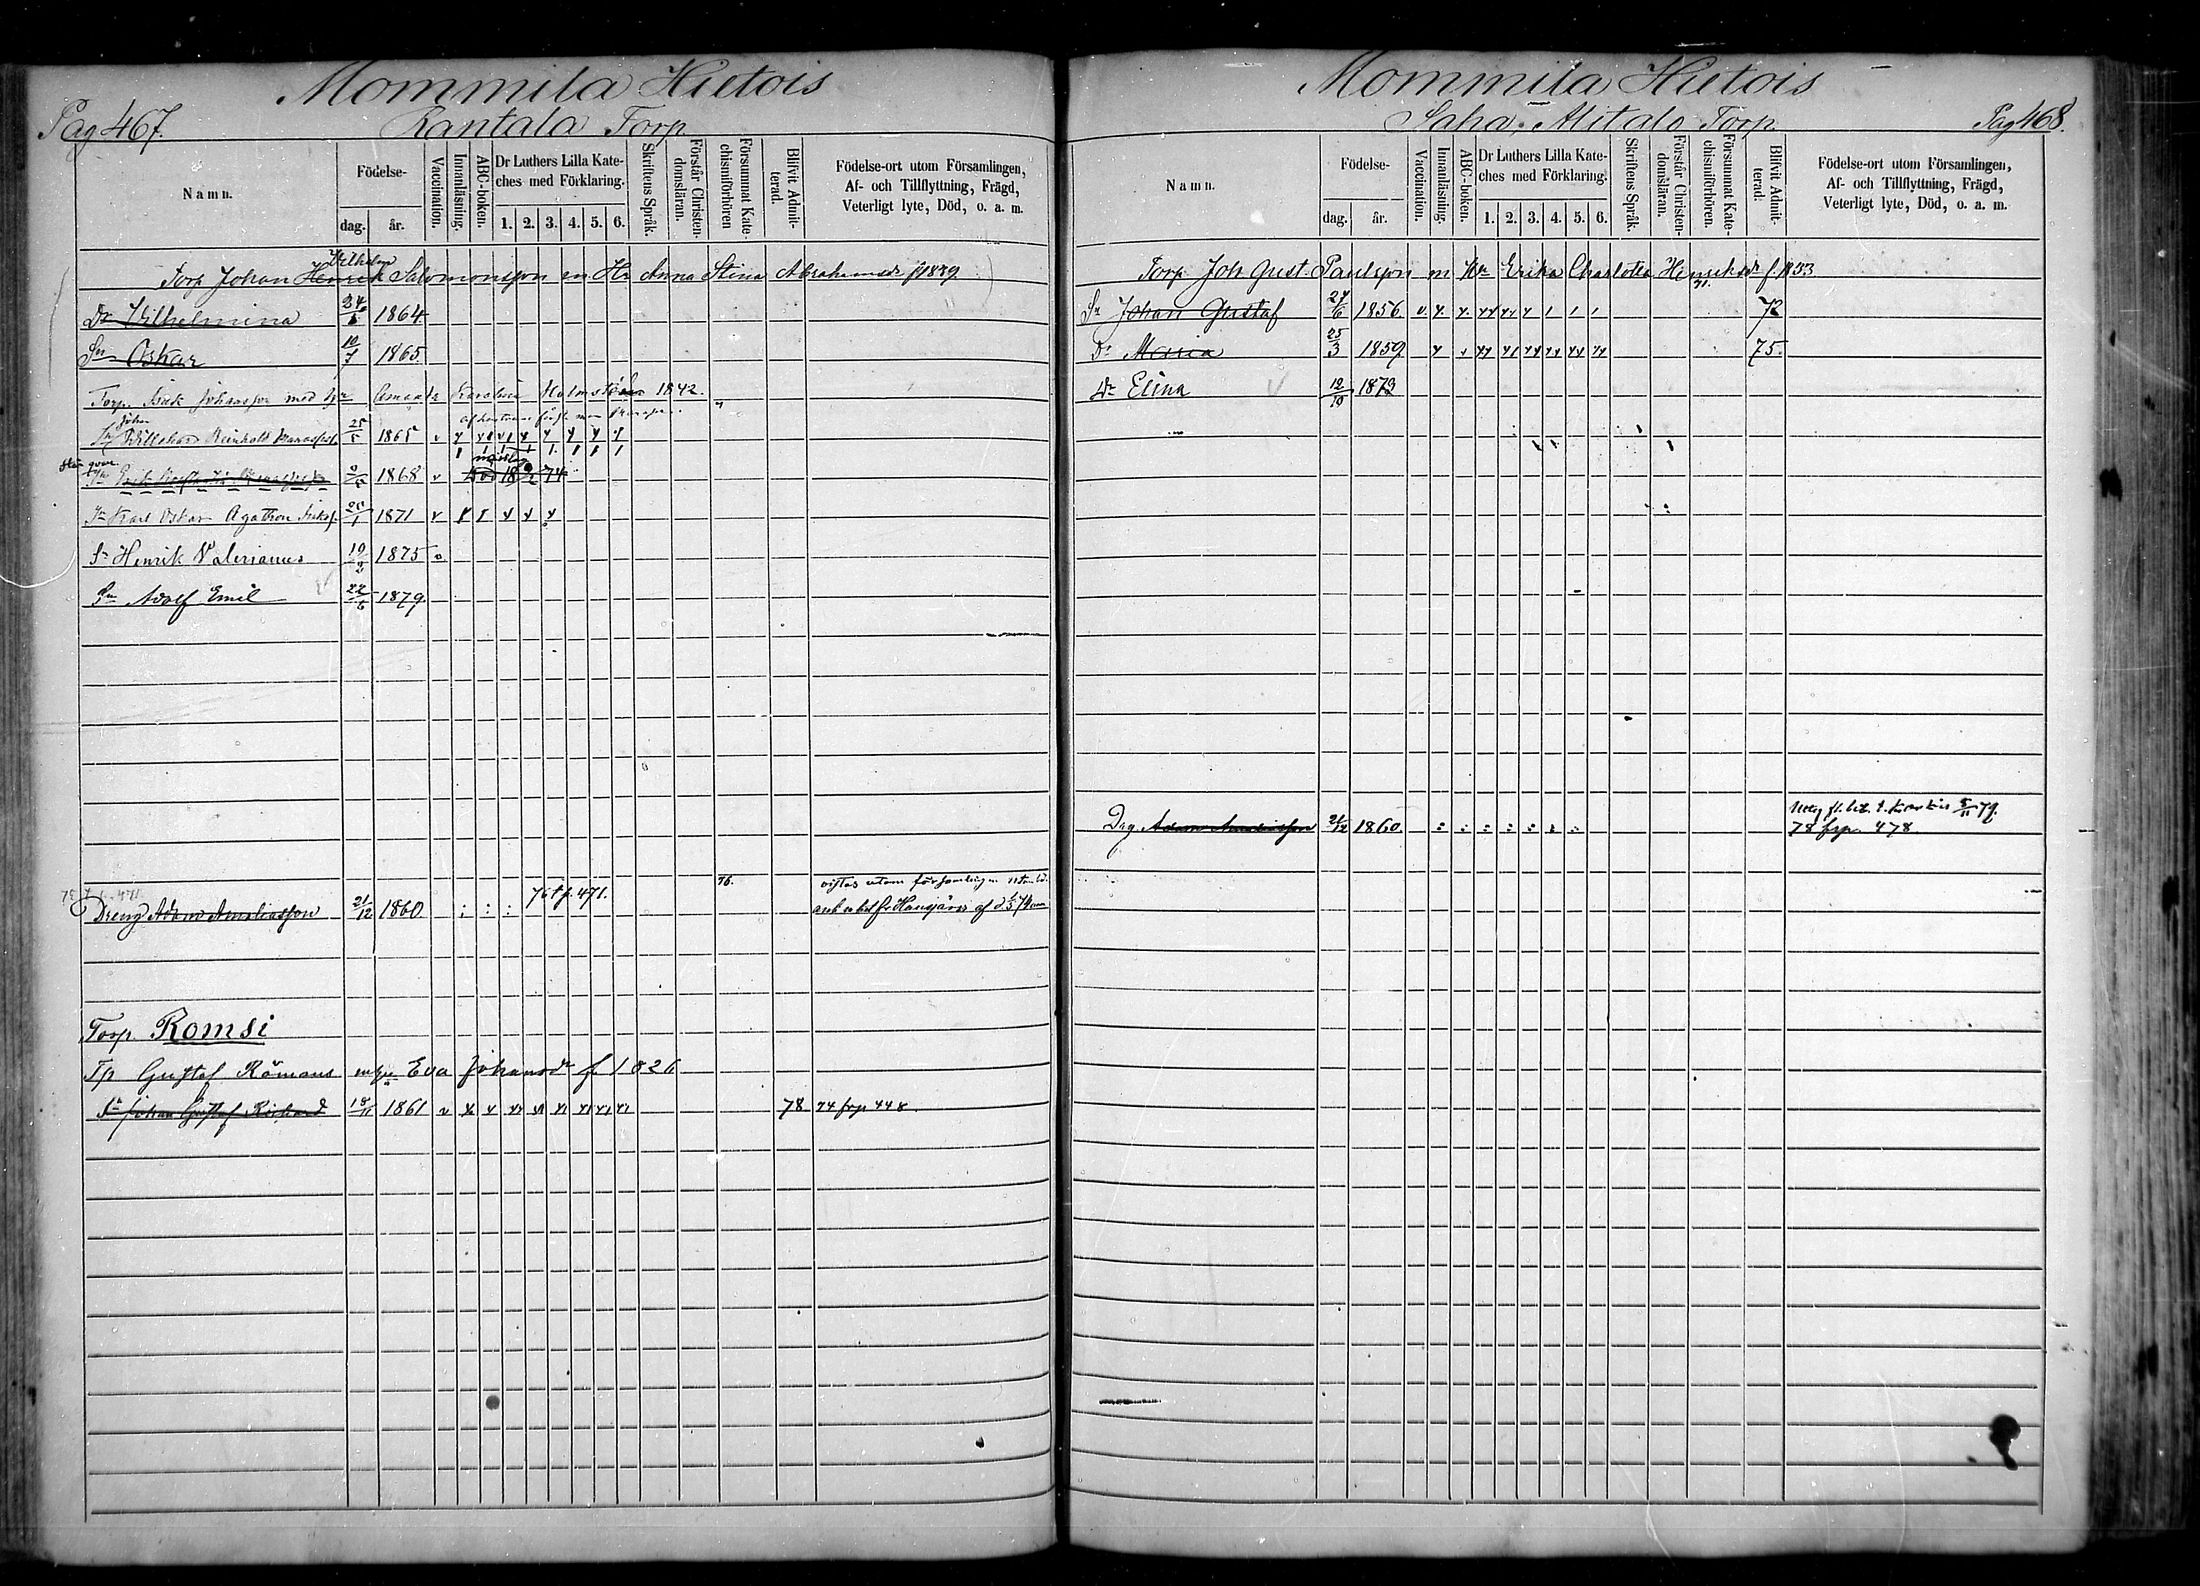 Mommila Hietois
Pag 467.
Rantala Torp
Namn.
Födelse-
dag.
år.
Vaccination.
Innanläsning.
ABC-boken.
Dr Luthers Lilla Kate-
ches med Förklaring.
1. 2. 3. 4. 5. 6.
Skriftens Språk.
Förstår Christen-
domsläran.
Försummat Kate-
chismiförhören
Blifvit Admit-
terad.
Födelse-ort utom Församlingen,
Af- och Tillflyttning, Frägd,
Veterligt lyte, Död, o. a. m.
Wilhelm
Torp Johan Henrik Salomonsson m Hu Anna Stina Abrahamsdr f 1829
Dr Wilhelmina 24/1 1864
Sn Oskar 10/7 1865
Torp. Isak Johansson med Hu Amanda Karolina Holmström 1842.
Johan
Reinhold 25/5 1865 v
1868 v död 18 74
Sn Karl Oskar Agathon 20/1 1871 v
Sn Henrik Valerianus 19/2 1875 v
Sn Adolf Emil 22/6 1879.
76.
76 t p. 471.
Dreng Adam Amaliasson 21/12 1860
vistas utom församlingen
Torp. Romsi
Tp Gustaf Råmans m Hu Eva Johansdr f 1826
Sn Johan Gustaf Richard 18/11 1861 v 78 74 frp 448.
Mommila Hietois
Saha-Alitalo Torp.
Pag 468.
Namn.
Födelse-
dag.
år.
Vaccination.
Innanläsning.
ABC-boken.
Dr Luthers Lilla Kate-
ches med Förklaring.
1. 2. 3. 4. 5. 6.
Skriftens Språk.
Förstår Christen-
domsläran.
Försummat Kate-
chismiförhören.
Blifvit Admit-
terad.
Födelse-ort utom Församlingen,
Af- och Tillflyttning, Frägd,
Veterligt lyte, Död, o. a. m.
Torp Joh Gust. Paulsson m Hu Erika Charlotta Henriksdr f. 1833
Sn Johan Gustaf 27/6 1856 v. 72
Dr Maria 25/3 1859 75.
Dr Elina 12/10 1873
Drg Adam Amaliasson 21/12 1860
78 frp. 478